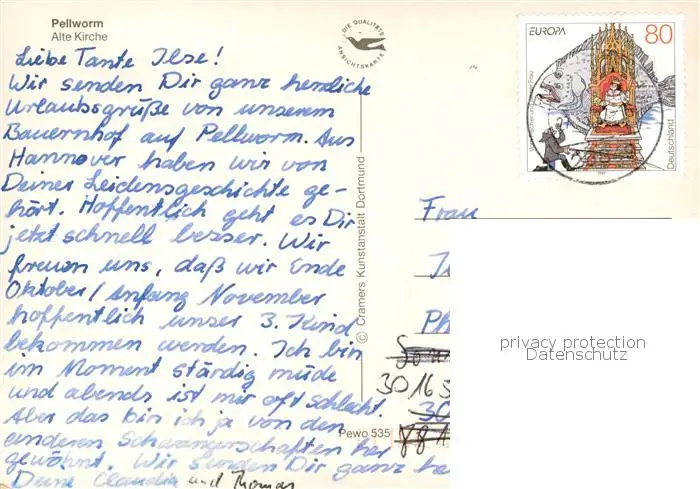 Pellworm
Alte Kirche
DIE QUALITÄTS
ANSICHTSKARTE
EUROPA
80
Deutschland
Liebe Tante Ilse!
Wir senden Dir ganz herzliche
Urlaubsgrüße von unserem
Bauernhof auf Pellworm. Aus
Hannover haben wir von
Deiner Leidensgeschichte ge-
hört. Hoffentlich geht es Dir
jetzt schnell besser. Wir
freuen uns, daß wir Ende
Oktober/Anfang November
hoffentlich unser 3. Kind
bekommen werden. Ich bin
im Moment ständig müde
und abends ist mir oft schlecht.
Aber das bin ich ja von den
anderen Schwangerschaften her
gewöhnt. Wir senden Dir ganz he
Deine Claudia und Thomas
© Cramers Kunstanstalt Dortmund
Pewo 535
Frau
Ph
3016
30
privacy protection
Datenschutz